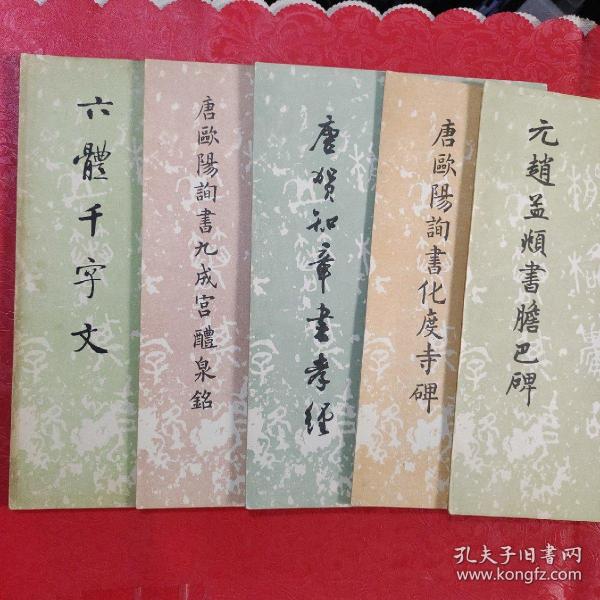 六體千字文
唐歐陽詢書九成宮醴泉銘
唐賀知章書孝經
唐歐陽詢書化度寺碑
元趙孟頫書膽巴碑
孔夫子旧书网
www.kongfz.com